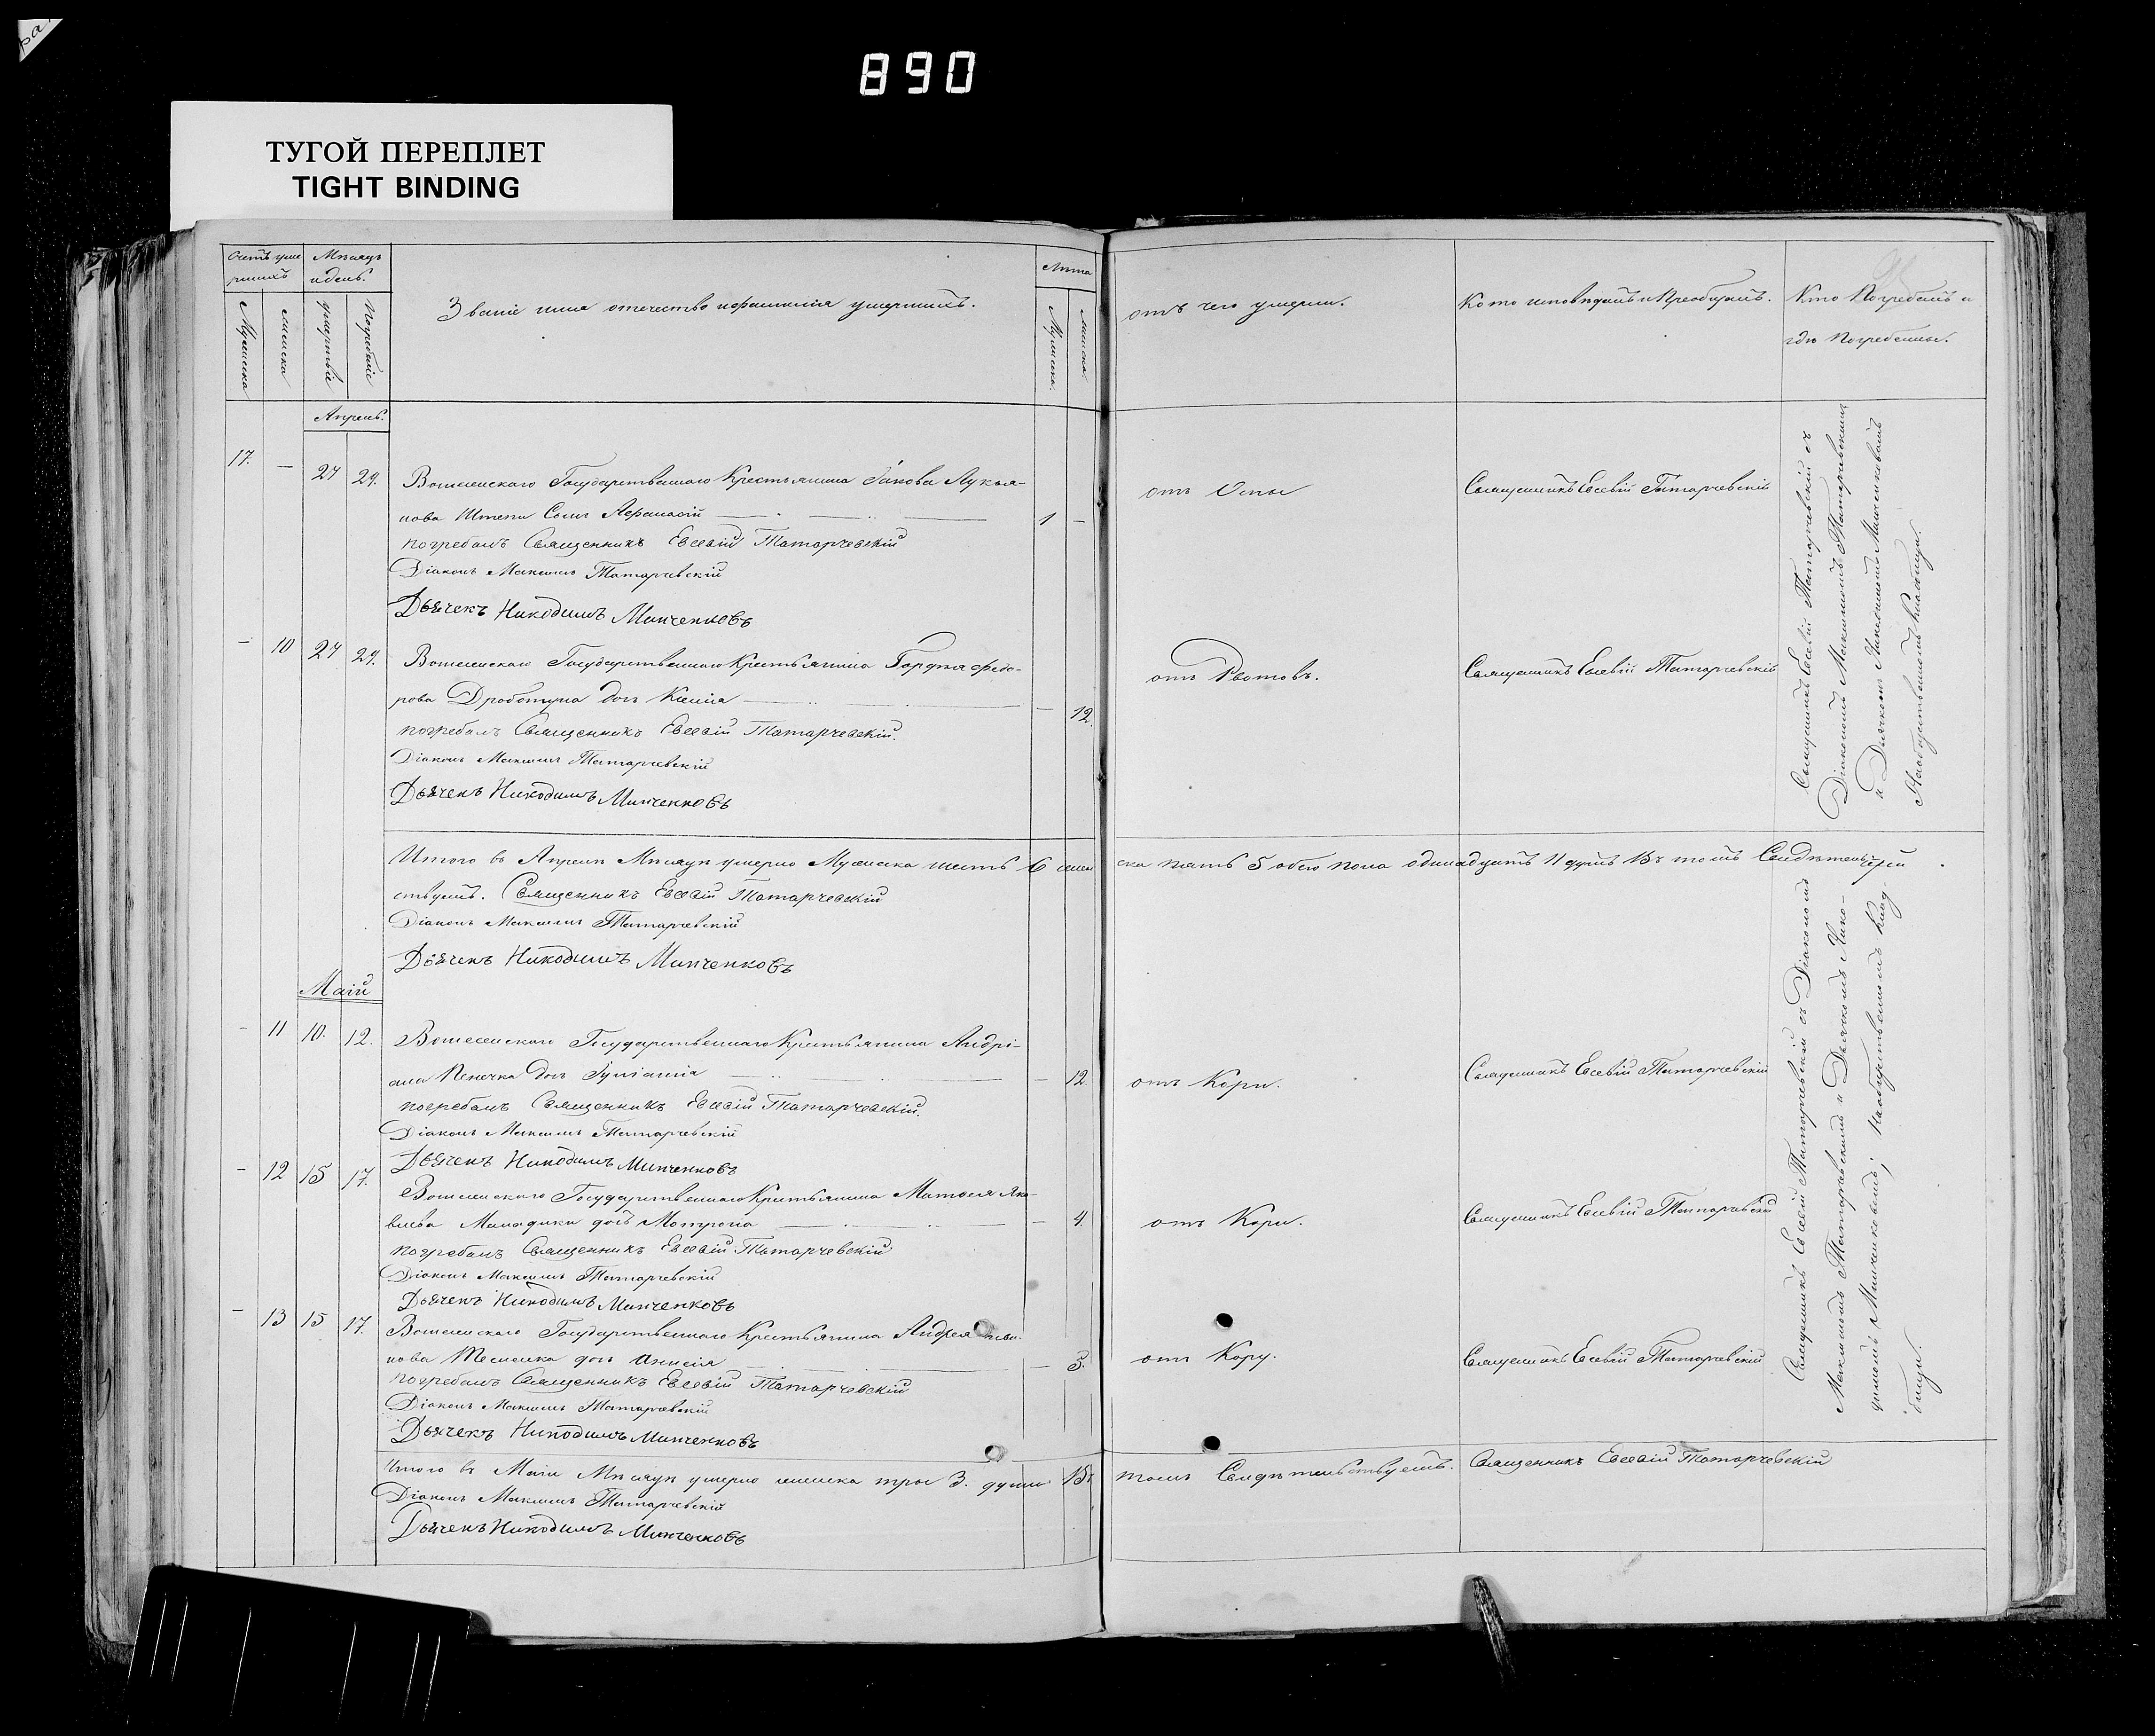 ра
890
ТУГОЙ ПЕРЕПЛЕТ
TIGHT BINDING
Счетъ уме
ршихъ
Мѣсяцъ
и день.
Мужеска
женска
умертвіе
Погребніе
Званіе имя отечество и фамилія умершихъ.
Лѣта
Мужеска.
женска.
отъ чего умерли.
Кто исповѣдалъ и Пріобщилъ.
Кто Погребалъ и
гдѣ Погребенны.
Апрель.
17. — 27 29. Государственнаго Крестьянина Іакова Лукья-
нова Сынъ Афанасій 1 —
отъ Оспы
Священникъ Евсевій Татарчевскій
погребалъ Священникъ Евсевій Татарчевскій
Діаконъ Максимъ Татарчевскій
Дьячекъ Никодимъ Минченковъ
— 10 27 29. Государственнаго Крестьянина Федо-
рова дочь Ксенія — 12.
Священникъ Евсевій Татарчевскій
погребалъ Священникъ Евсевій Татарчевскій.
Діаконъ Максимъ Татарчевскій
Дьячекъ Никодимъ Минченковъ
Священникъ Евсевій Татарчевскій съ
Діакономъ Максимомъ Татарчевскимъ
и Дьячкомъ Никодимомъ Минченковымъ
Кладбищи.
Итого въ Апрели Мѣсяцѣ умерло Мужеска шесть 6 женска пять 5 обего пола одинадцать 11 душъ Въ томъ Свидѣтель-
ствуетъ. Священникъ Евсевій Татарчевскій
Діаконъ Максимъ Татарчевскій
Дьячекъ Никодимъ Минченковъ
Маій
— 11 10. 12. Государственнаго Крестьянина Андрі-
ана дочь Іуліанія — 12.
отъ Кори.
Священникъ Евсевій Татарчевскій
погребалъ Священникъ Евсевій Татарчевскій.
Діаконъ Максимъ Татарчевскій
Дьячекъ Никодимъ Минченковъ
— 12 15 17. Государственнаго Крестьянина Матвея Яко-
влева дочь Мотрона — 4.
отъ Кори.
Священникъ Евсевій Татарчевскій
погребалъ Священникъ Евсевій Татарчевскій
Діаконъ Максимъ Татарчевскій
Дьячекъ Никодимъ Минченковъ
— 13 15 17. Государственнаго Крестьянина Андрея Ива-
нова дочь Анисія — 3.
отъ Кору.
Священникъ Евсевій Татарчевскій
погребалъ Священникъ Евсевій Татарчевскій
Діаконъ Максимъ Татарчевскій
Дьячекъ Никодимъ Минченковъ
Священникъ Евсевій Татарчевскій съ Діакономъ
Максимомъ Татарчевскимъ и Дьячкомъ Нико-
димомъ Минченковымъ, Клад-
бищи.
Итого въ Маіи Мѣсяцѣ умерло женска три 3. души Въ томъ Свидѣтельствуетъ. Священникъ Евсевій Татарчевскій
Діаконъ Максимъ Татарчевскій
Дьячекъ Никодимъ Минченковъ